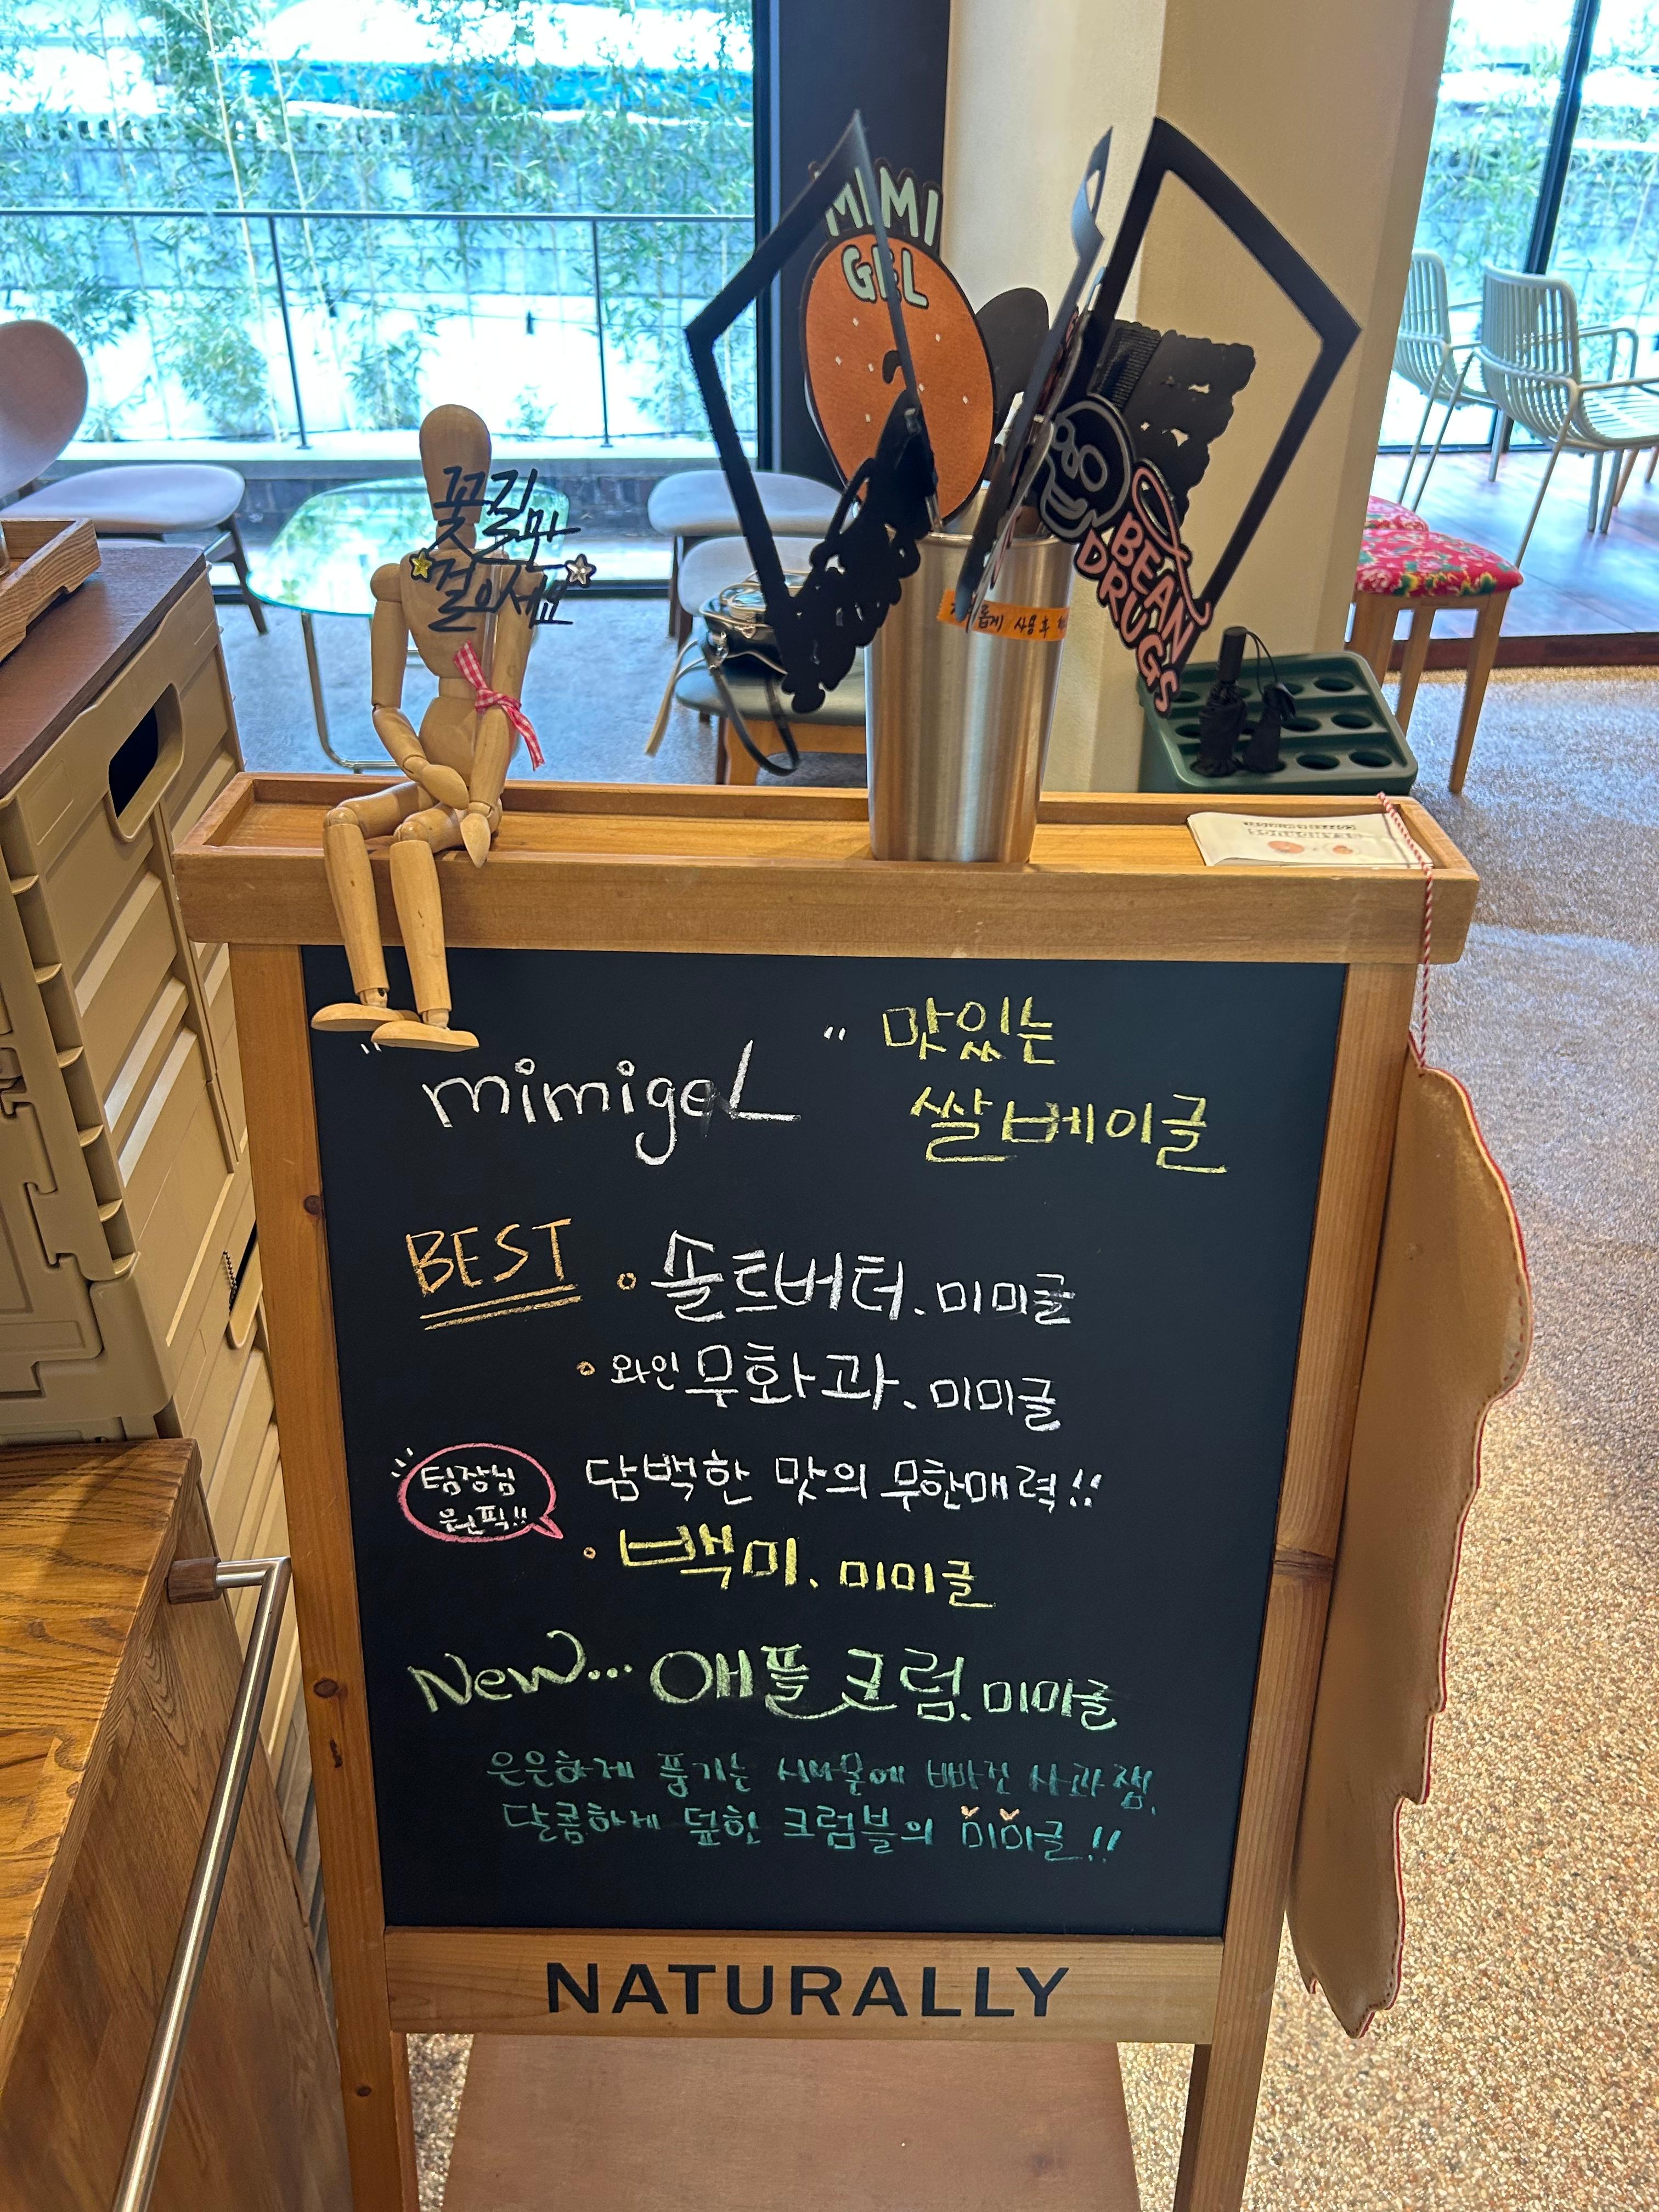 MIMI
GEL
꽃길만
걸으세요
BEAN
DRUGS
사용 후
" mimigeL " 맛있는
쌀베이글
BEST • 솔트버터. 미미글
• 와인 무화과. 미미글
팀장님
원픽!!
담백한 맛의 무한매력!!
• 백미. 미미글
New... 애플크럼. 미미글
은은하게 풍기는 시나몬에 빠진 사과잼.
달콤하게 덮힌 크럼블의 미미글!!
NATURALLY